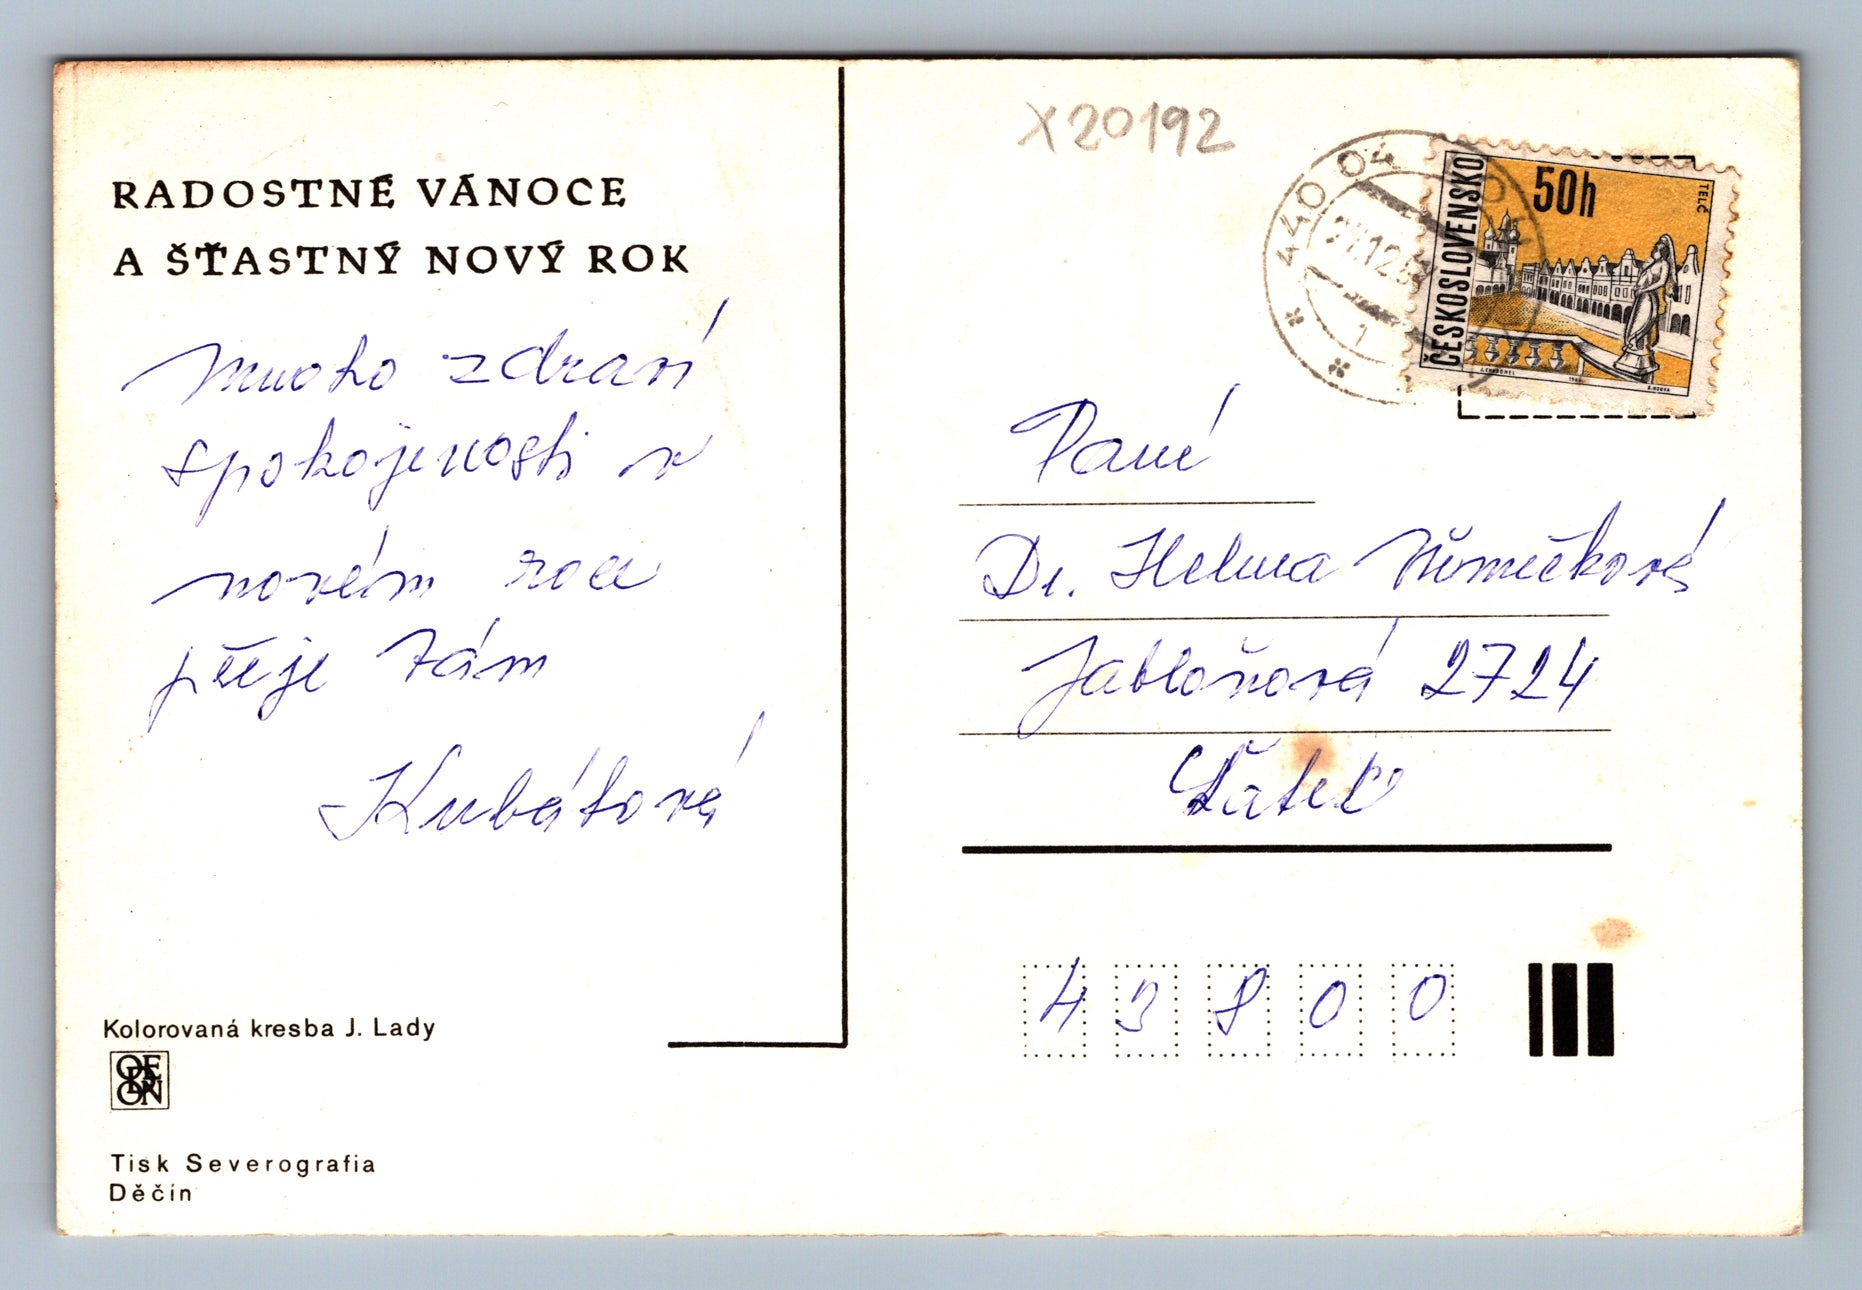 RADOSTNÉ VÁNOCE
A ŠŤASTNÝ NOVÝ ROK
Mnoho zdraví
spokojenosti v
novém roce
přeje Vám
Kubátová
Kolorovaná kresba J. Lady
ODEON
Tisk Severografia
Děčín
X20192
440 04
.12.
1
ČESKOSLOVENSKO
50h
TELČ
Paní
Dr. Helena Němečková
Jabloňová 2724
Žatec
43800